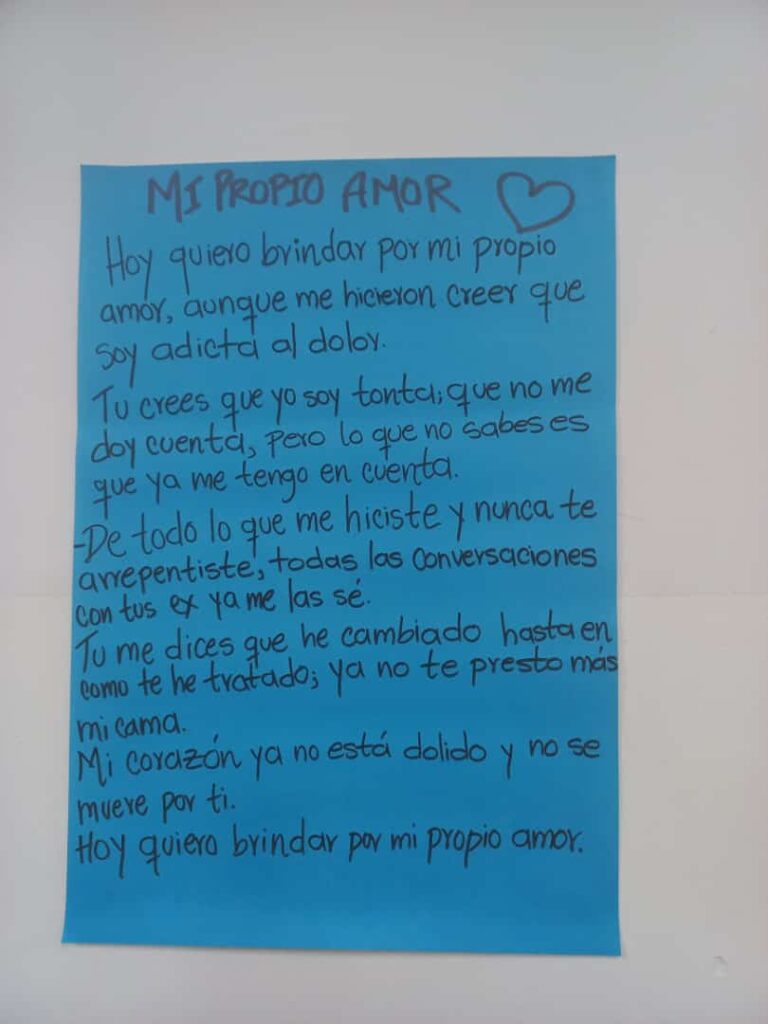 MI PROPIO AMOR
Hoy quiero brindar por mi propio
amor, aunque me hicieron creer que
soy adicta al dolor.
Tu crees que yo soy tonta; que no me
doy cuenta, pero lo que no sabes es
que ya me tengo en cuenta.
-De todo lo que me hiciste y nunca te
arrepentiste, todas las conversaciones
con tus ex ya me las sé.
Tu me dices que he cambiado hasta en
como te he tratado; ya no te presto más
mi cama.
Mi corazón ya no está dolido y no se
mueve por ti.
Hoy quiero brindar por mi propio amor.